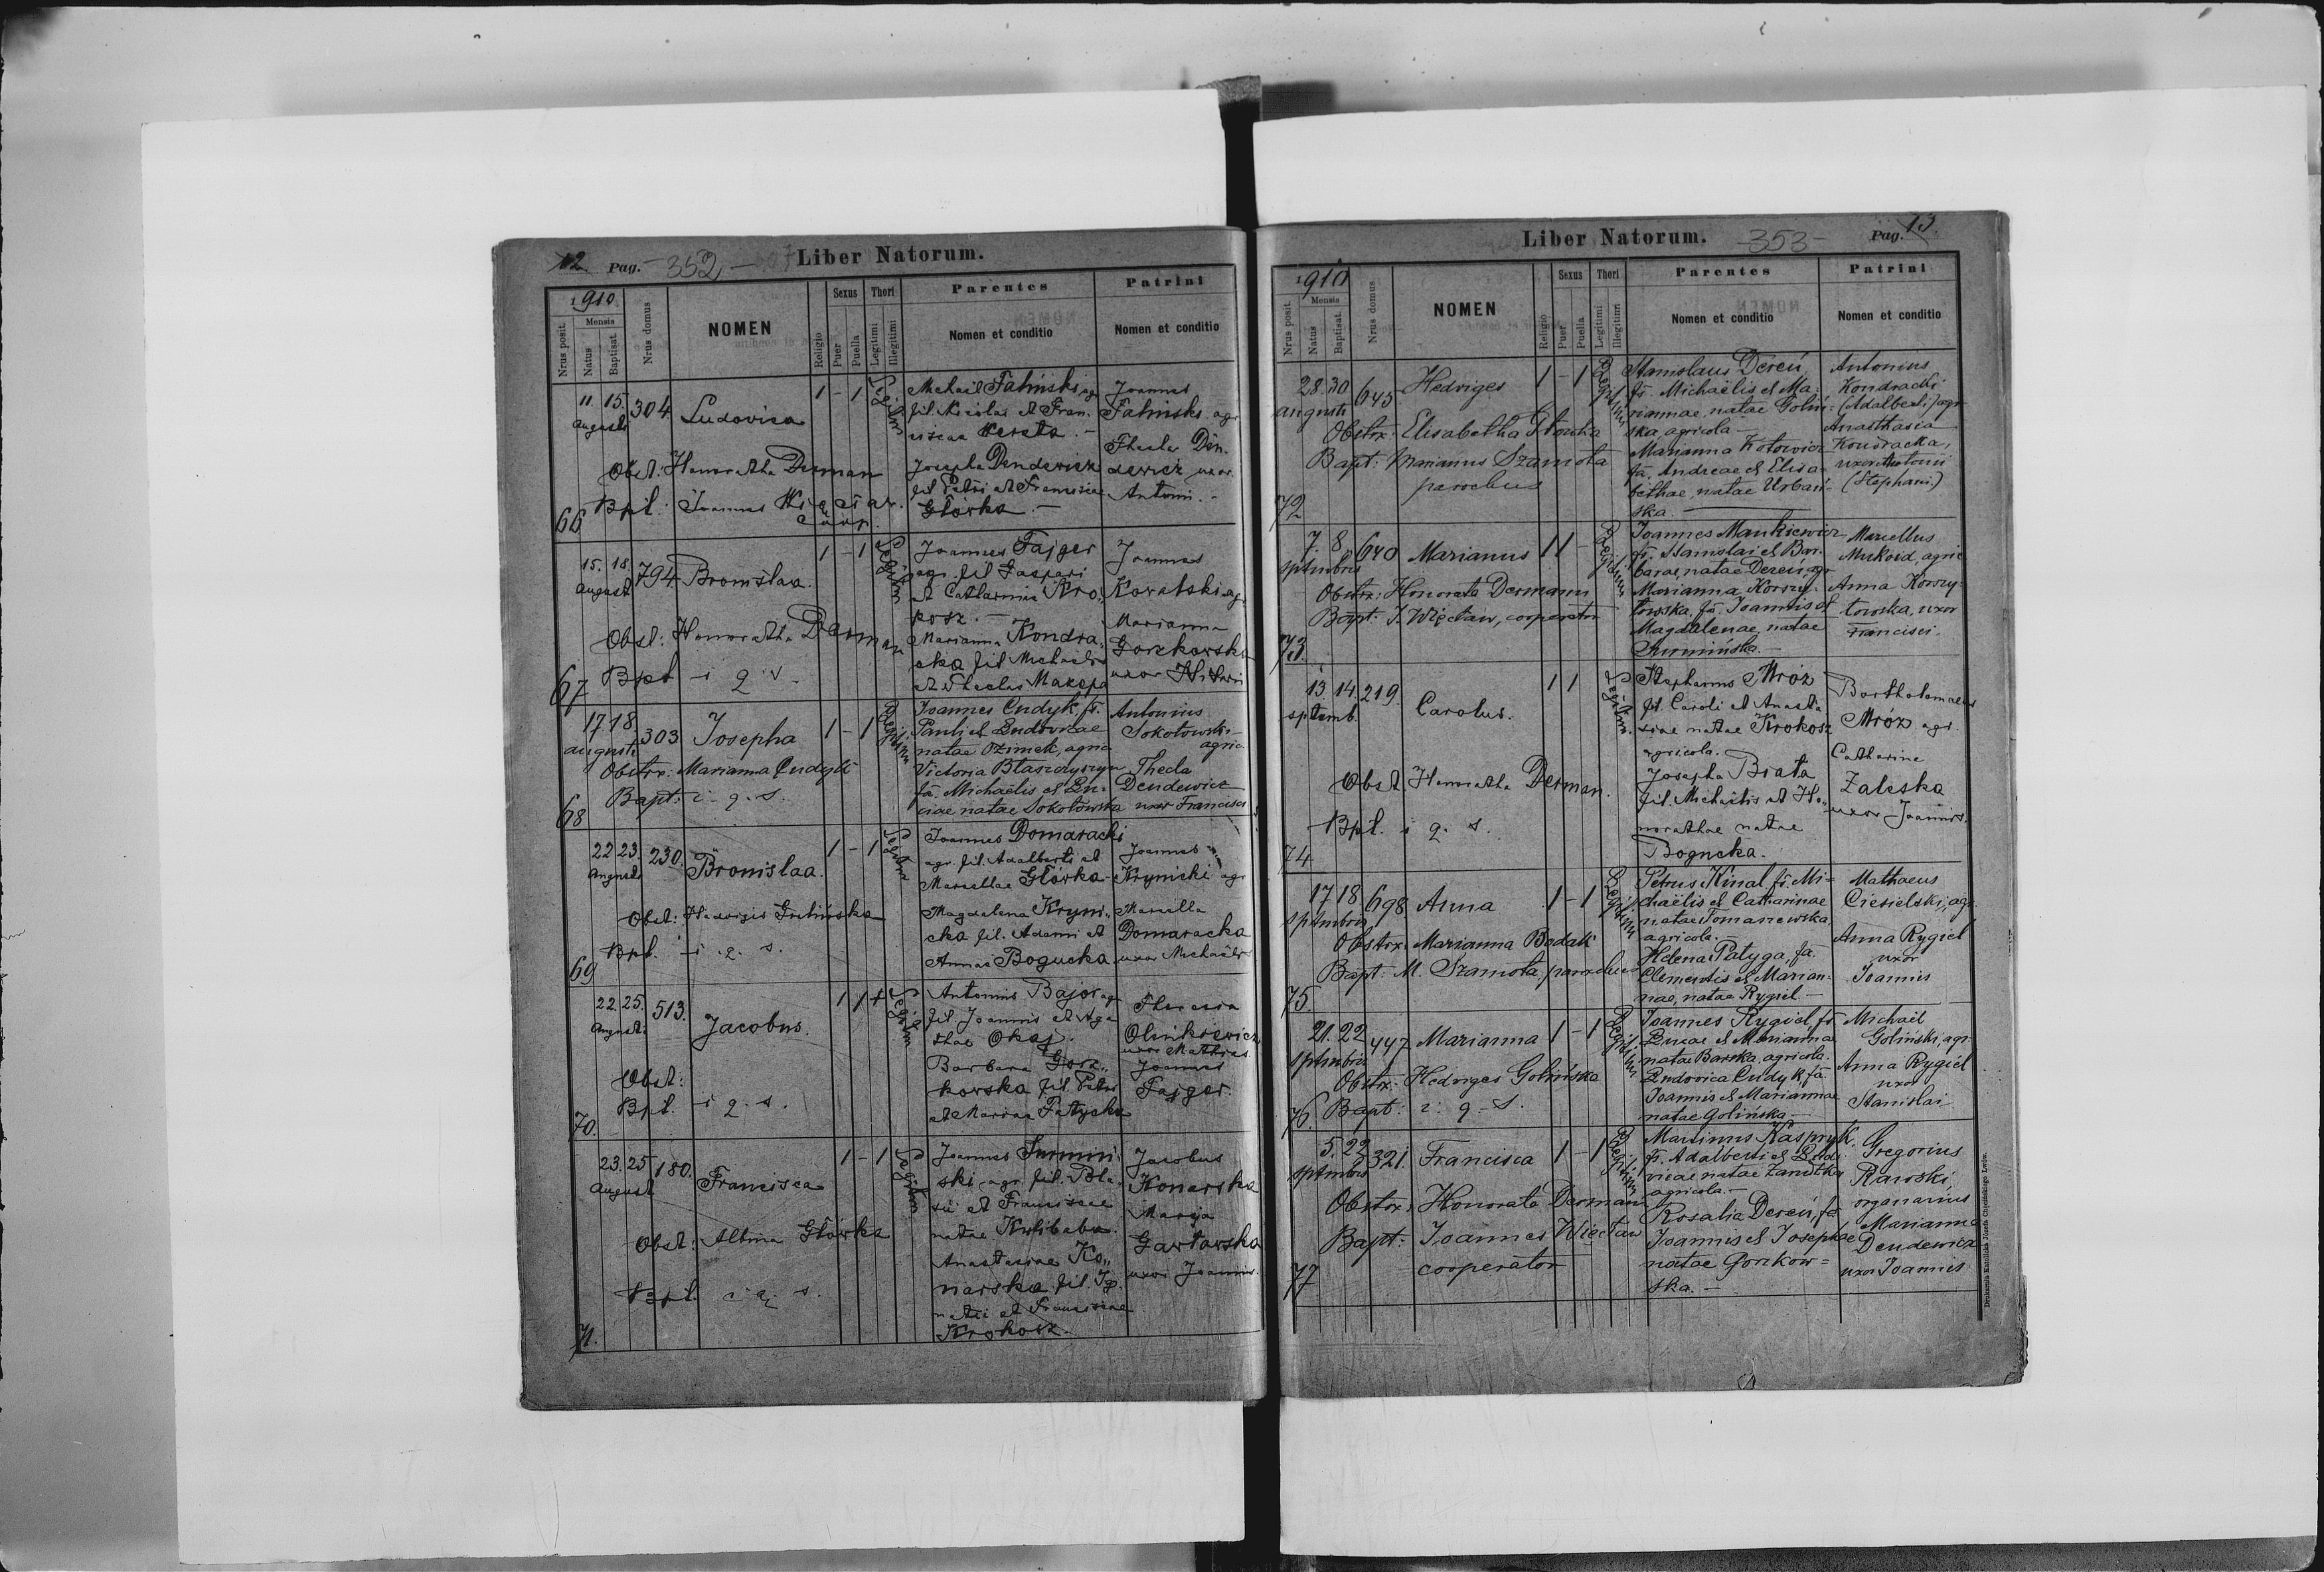 12 Pag. - 352 - Liber Natorum.
1910.
Nrus posit.
Mensis
Natus
Baptisat.
Nrus domus
NOMEN
Religio
Sexus
Puer
Puella
Thori
Legitimi
Illegitimi
Parentes
Nomen et conditio
Patrini
Nomen et conditio
66
11 15
Augusti
304
Ludovica
1 - 1
Legitim
Obst: Honoratha Derman
Bpt. Joannes Więcław
coop.
Michaël Falinski ag
fil. Nicolai et Fran-
ciscae Kersta. -
Josepha Dendewicz
fil Petri et Franciscae
Główka. -
Joannes
Falinski agr
Thecla Den-
dewicz uxor
Antoni. -
67
15. 18
August
794
Bronislaa.
1 - 1
Legitim
Obst: Honoratha Derman
Bpt i q s.
Joannes Fajger
agr. fil Gaspari
et Catharinae Kro-
kosz. -
Marianna Kondra-
cka fil Michaëlis
et Theclae Makepa
Joannes
Koralski ag.
Marianna
Gorzkowska
uxor Hilarii
68
17 18
augusti
303
Josepha
1 - 1
Legitim
Obstrx: Marianna Cudyk
Bapt: i. q. s.
Joannes Cudyk, fs.
Pauli et Ludovicae
natae Ozimek, agric
Victoria Błaszczyszyn
fa. Michaëlis et Lu-
ciae natae Sokołowska
Antonius
Sokołowski -
agric.
Thecla
Dendewicz
uxor Francisci
69
22 23.
Augusti
230.
Bronislaa.
1 - 1
Legitim
Obst: Hedvigis Golińska
Bpt. i. q. s.
Joannes Domaracki
agr. fil. Adalberti et
Marcellae Główka -
Magdalena Kryni-
cka fil. Adami et
Annae Bogucka
Joannes
Krynicki agr
Marcella
Domaracka
uxor Michaëlis
70.
22. 25.
Augusti
513.
Jacobus.
1 1 +
Legitim
Obst:
Bpt. i q. s.
Antonius Bajor ag
fil. Joannis et Aga-
thae Okaj.
Barbara Gorz-
kowska fil Petri
et Mariae Patycka
Theresia
Olinkiewicz
uxor Mathias
Joannes
Fajger.
71.
23. 25
August
180.
Francisca
1 - 1
Legitim
Obst: Albina Główka
Bpt. i q. s.
Joannes Surmin-
ski agr. fil. Bla-
sii et Franciscae
natae Kulibaba.
Anastasiae Ko-
narska fil. Ig-
natii et Franciscae
Krokosz.
Jacobus
Konarska
Maryja
Gawłowska
uxor Joannis.
Liber Natorum. - 353 - Pag. 13.
1910
Nrus posit.
Mensis
Natus
Baptisat.
Nrus domus
NOMEN
Religio
Sexus
Puer
Puella
Thori
Legitimi
Illegitimi
Parentes
Nomen et conditio
Patrini
Nomen et conditio
72
28 30
augusti
645
Hedviges
1 - 1
Legitim
Obstrx: Elisabetha Główka
Bapt: Marianus Szamota
parochus
Stanislaus Dereń,
fs. Michaëlis et Ma-
riannae, natae Goliń-
ska, agricola -
Marianna Kotowicz
fa. Andreae et Elisa-
bethae, natae Urbań-
ska
Antonius
Kondracki
(Adalberti) agr
Anasthasia
Kondracka,
uxor Antonii
(Stephani)
73.
7. 8
sptmbris
640
Marianus
1 1 -
Legitim
Obstrx: Honorata Dermann
Bapt: J. Więcław, cooperator
Joannes Mankiewicz
fs. Stanislai et Bar-
barae, natae Dereń, agr
Marianna, Korszy-
łowska, fa. Joannis et
Magdalenae, natae
Surmińska. -
Marcellus
Mukoid, agric
Anna Korszy-
łowska, uxor
Francisci.
74
13 14.
septemb.
219.
Carolus.
1 1
Legitim.
Obst. Honoratha Derman.
Bpt. i q. s.
Stephanus Mróz
fil. Caroli et Anasta-
siae natae Krokosz
agricola.
Josepha Brata
fil. Michaëlis et Ho-
norathae natae
Bogucka.
Bartholomaeus
Mróz agr.
Catharina
Zaleska
uxor Joannis.
75.
17 18
sptmbris
698
Anna
1 - 1
Legitim
Obstrx: Marianna Badak
Bapt: M. Szamota, parochus
Petrus Kinal, fs. Mi-
chaëlis et Catharinae
natae Tomaszewska,
agricola. -
Helena Patyga, fa.
Clementis et Marian-
nae, natae Rygiel. -
Mathaeus
Ciesielski, agr.
Anna Rygiel
uxor
Joannis
76.
21. 22
sptmbris
447
Marianna
1 - 1
Legitim
Obstrx: Hedviges Golińska
Bapt: i. q. s.
Joannes Rygiel, fs
Lucae et Marianna
natae Barska, agricola.
Ludovica Cudyk, fa.
Joannis et Mariannae
natae Golińska -
Michaël
Goliński, agr.
Anna Rygiel
uxor
Stanislai
77
5. 22
sptmbris
321.
Francisca
1 - 1
Legitim
Obstrx: Honorata Dermann
Bapt: Joannes Więcław
cooperator
Martinus Kaspryk,
fs. Adalberti et Ludo-
vicae natae Zamołka
agricola. -
Rosalia Dereń, fa
Joannis et Josephae
natae Gorzkow-
ska. -
Gregorius
Rawski,
organarius
Marianna
Dendewicz
uxor Joannis
Drukarnia Katolicka Józefa Chęcińskiego Lwów.